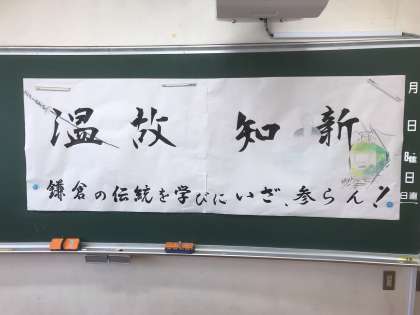 温故知新
鎌倉の伝統を学びにいざ、参らん!
月
日
日直